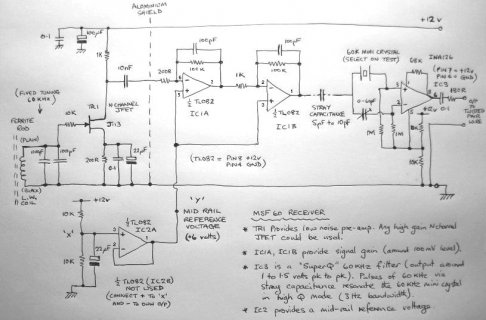 ALUMINIUM
SHIELD
+12v
0.1
100µF
1K
10nF
200R
100pF
100K
½ TL082
IC1A
1K
100pF
100K
½ TL082
IC1B
STRAY
CAPACITANCE
5pF to 10pF
60K MINI CRYSTAL
(SELECT ON TEST)
68K
INA126
(PIN 7 = +12v
PIN 4 = GND)
IC3
180R
+12v
0.1
10K
10K
1M
1M
O/P
TO
TWISTED
PAIR
WIRE
(FIXED TUNING
60KHz)
FERRITE
ROD
(PLAIN)
(BLACK)
L.W.
COIL
100pF
10K
TR1
N CHANNEL
JFET
J113
200R
0.1
22µF
(TL082 = PIN 8 +12v
PIN 4 GND)
'Y'
MID RAIL
REFERENCE
VOLTAGE
(+6 volts)
+12v
10K
'X'
10K
22µF
½ TL082
IC2A
½ TL082 (IC2B)
NOT USED
(CONNECT + TO 'X'
AND - TO OWN O/P)
MSF 60 RECEIVER
* TR1 Provides low noise pre-amp. Any high gain N channel
JFET could be used.
* IC1A, IC1B provide signal gain (around 100mV level).
* IC3 is a "SuperQ" 60KHz filter (output around
1 to 1.5 volts pk to pk). Pulses of 60KHz via
stray capacitance resonate the 60KHz mini crystal
in high Q mode (3Hz bandwidth).
* IC2 provides a mid-rail reference voltage.